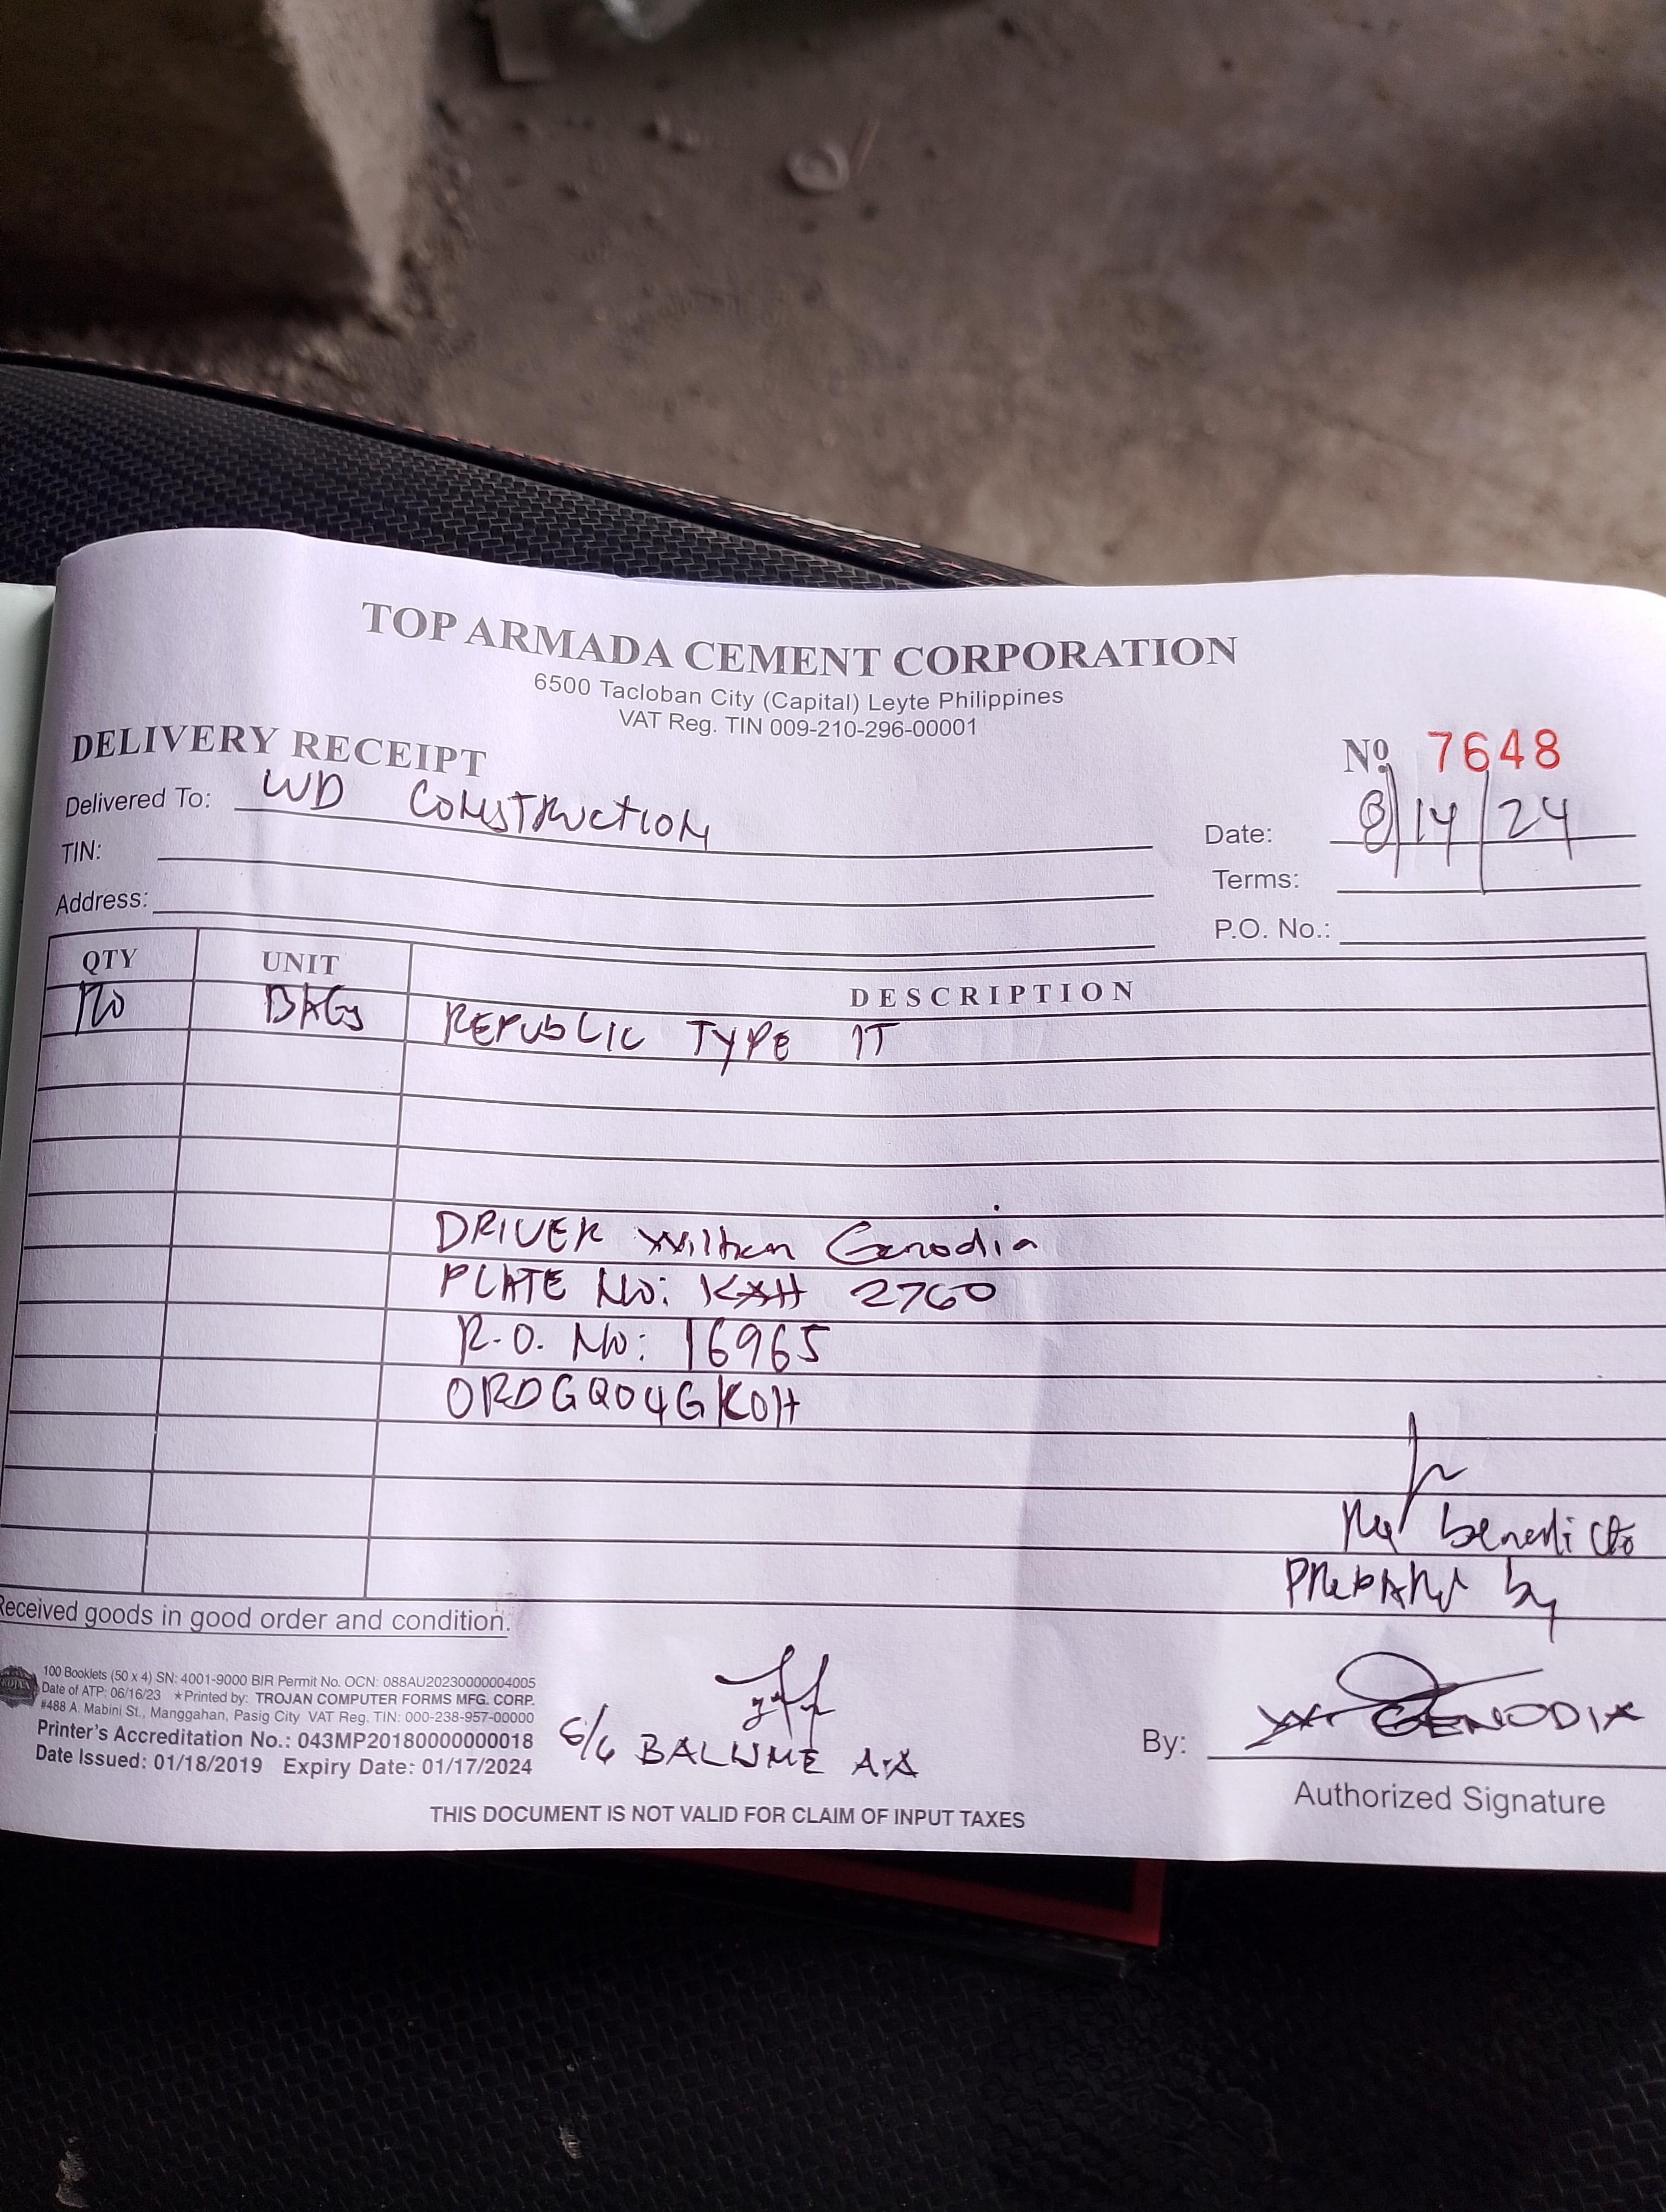 TOP ARMADA CEMENT CORPORATION
6500 Tacloban City (Capital) Leyte Philippines
VAT Reg. TIN 009-210-296-00001
DELIVERY RECEIPT
Nº 7648
Delivered To: WD CONSTRUCTION
Date: 8/14/24
TIN:
Terms:
Address:
P.O. No.:
QTY UNIT DESCRIPTION
BAGS REPUBLIC TYPE 1T
DRIVER William Genodia
PLATE No: KAH 2760
R.O. No: 16965
ORDGQ04GK0H
benedicto
PREPARED by
Received goods in good order and condition.
100 Booklets (50 x 4) SN: 4001-9000 BIR Permit No. OCN: 088AU20230000004005
Date of ATP: 06/16/23 ★Printed by: TROJAN COMPUTER FORMS MFG. CORP.
#488 A. Mabini St., Manggahan, Pasig City VAT Reg. TIN: 000-238-957-00000
Printer's Accreditation No.: 043MP20180000000018
Date Issued: 01/18/2019 Expiry Date: 01/17/2024
S/G BALUME A.A
By: W. GENODIA
Authorized Signature
THIS DOCUMENT IS NOT VALID FOR CLAIM OF INPUT TAXES